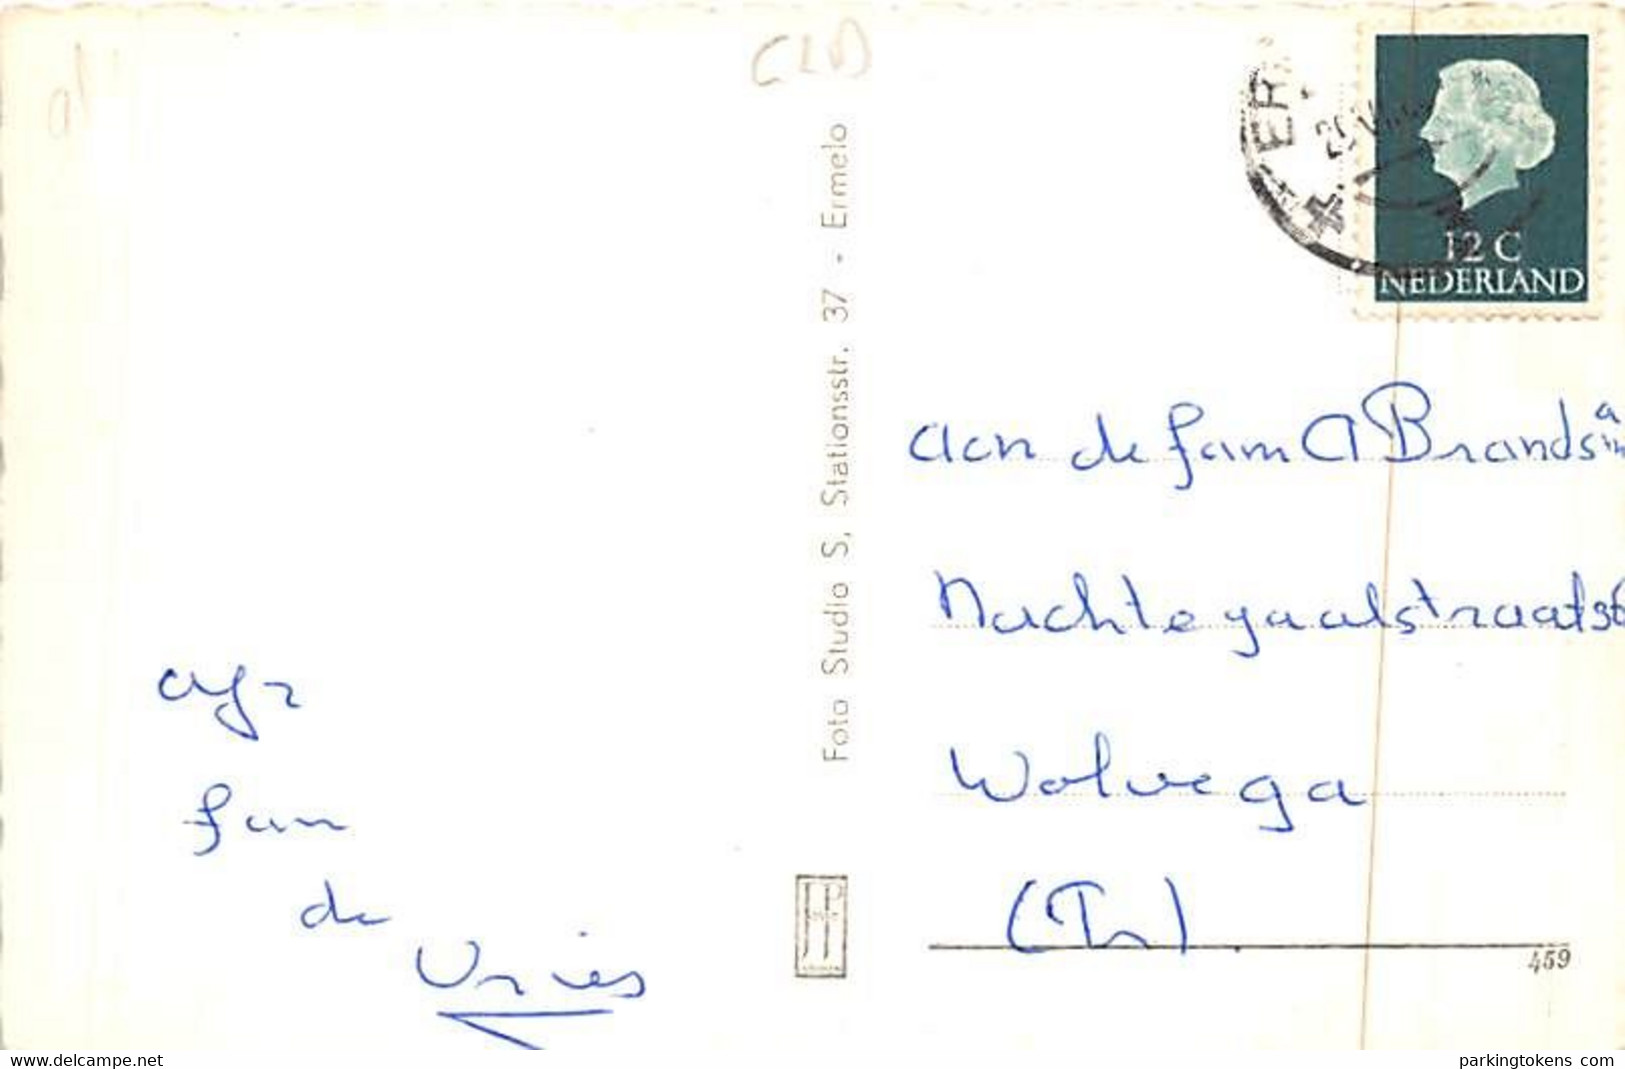 CLD
Foto Studio S, Stationsstr. 37 - Ermelo
12 C
NEDERLAND
aan de fam A Brandsma
Nachtegaalstraat 36
Wolvega
(Fr)
afz
fam
de
Vries
JP
459
www.delcampe.net
parkingtokens.com